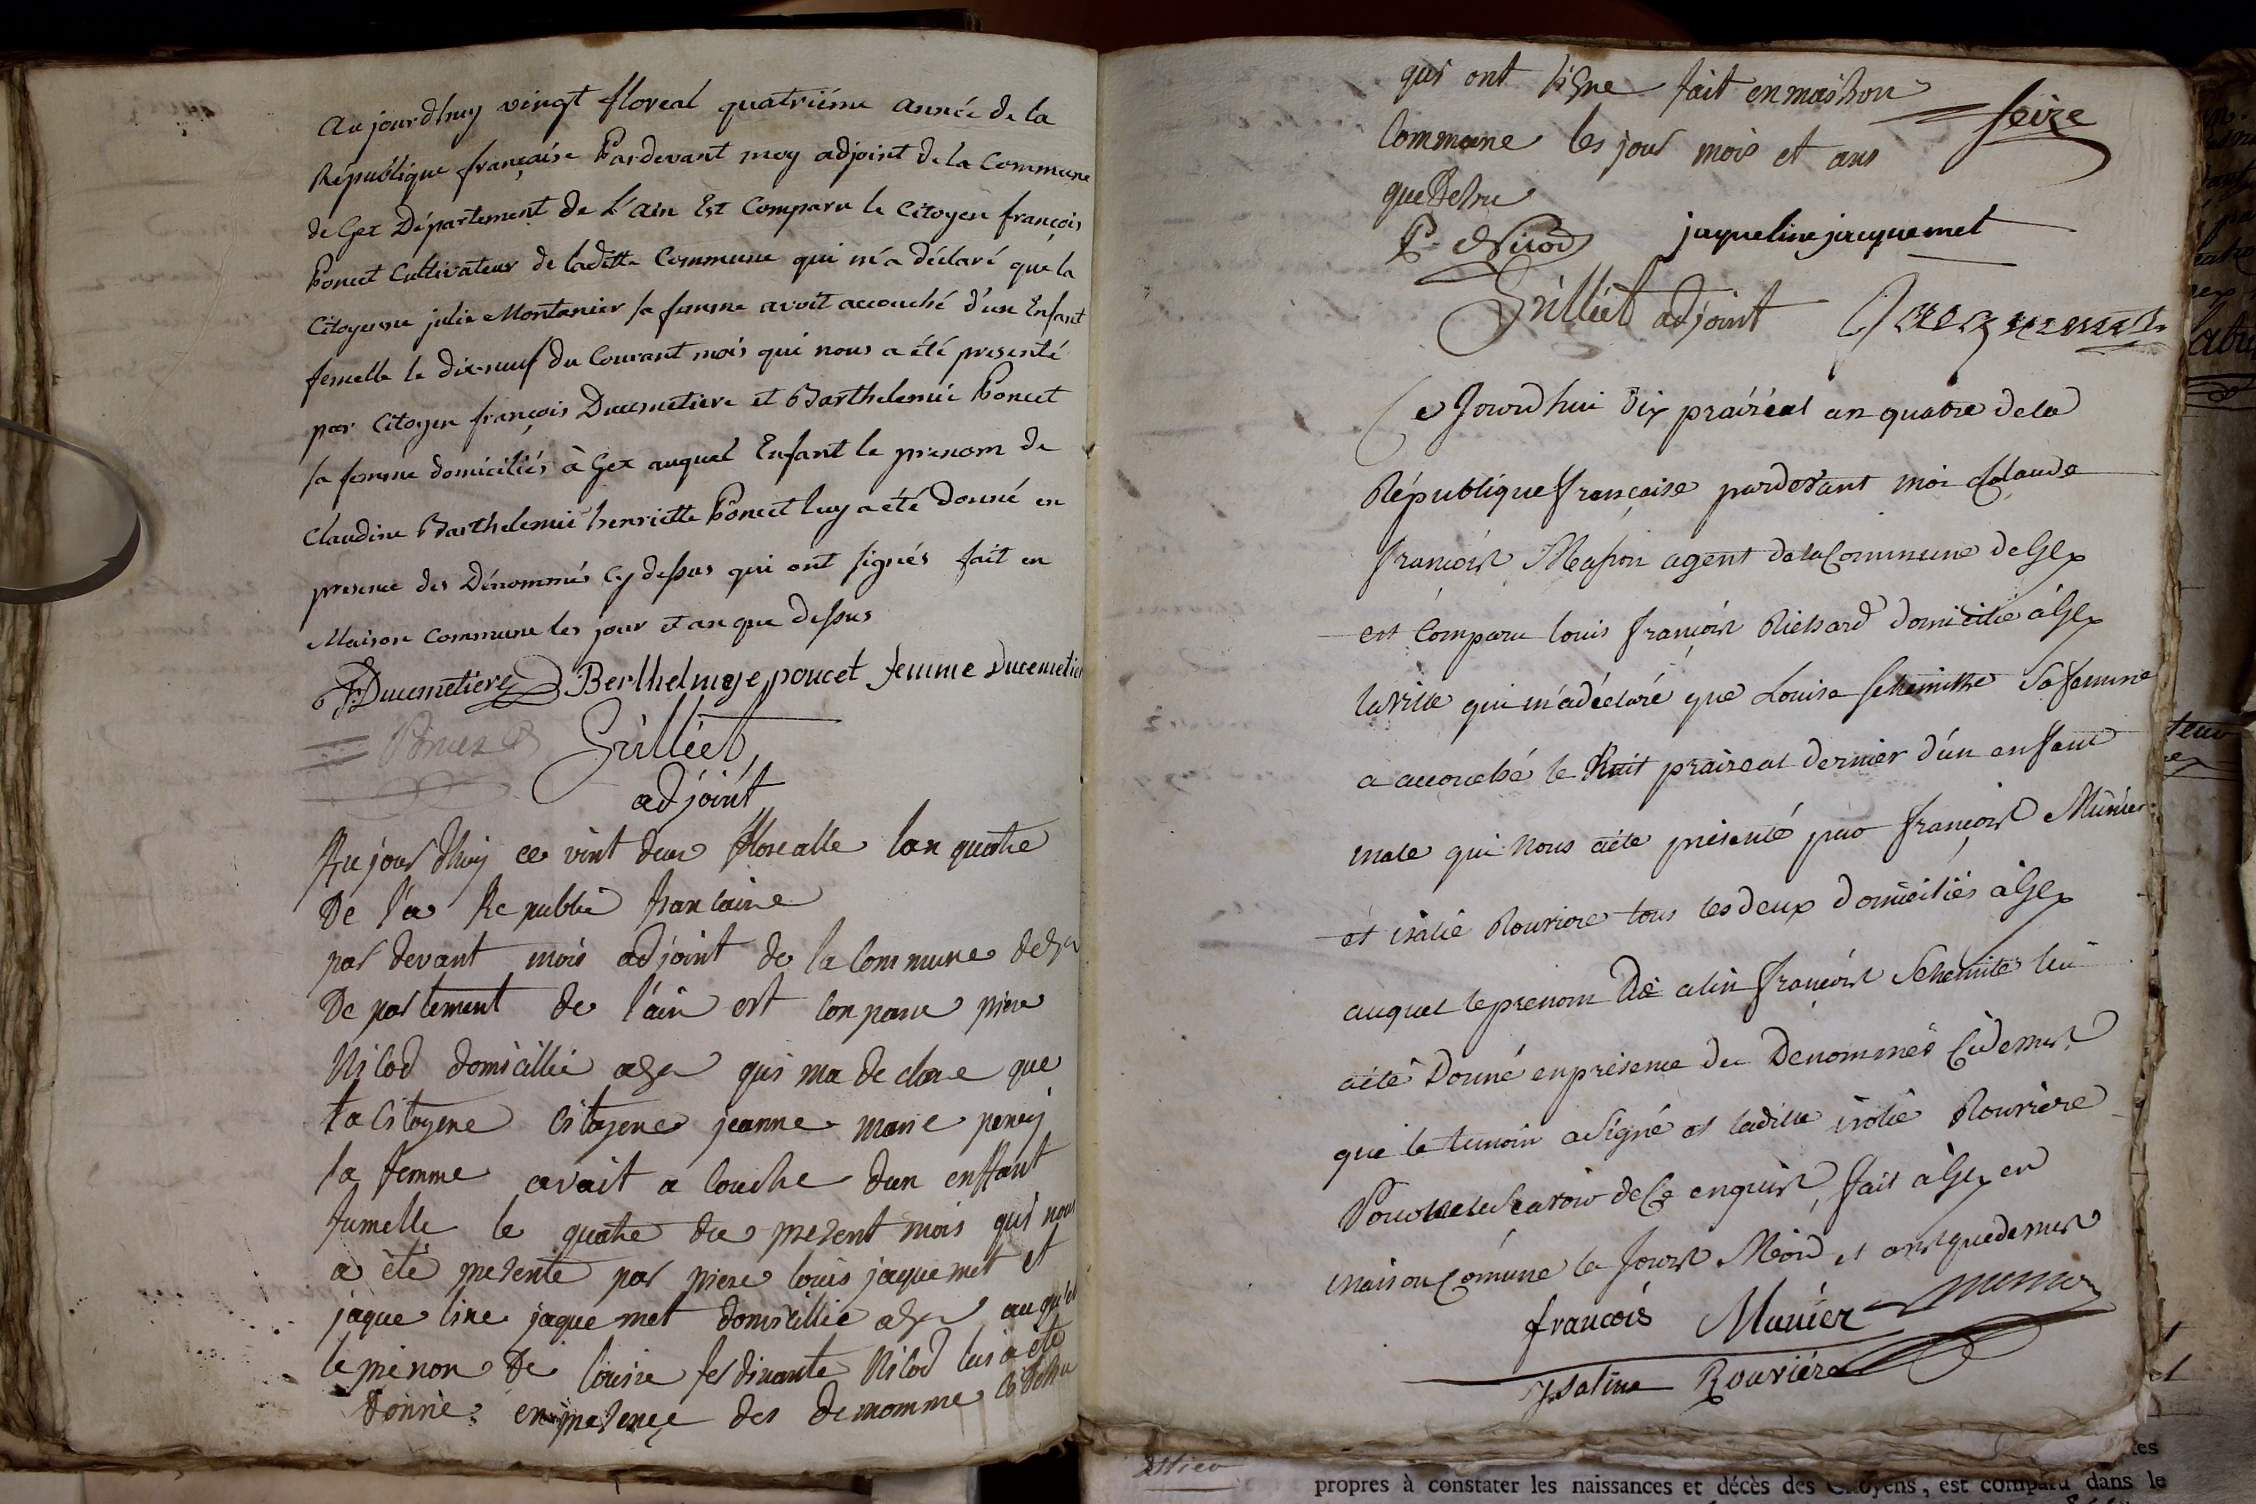 Aujourdhuy vingt floreal quatriéme année de la
République française Pardevant moy adjoint de la Commune
de Gex Département de L'ain Est Comparu le Citoyen françois
Poncet Cultivateur de laditte Commune qui m'a déclaré que la
Citoyenne julie Montanier sa femme avoit accouché d'un Enfant
femelle le dix-neuf du Courant mois qui nous a été presenté
par Citoyen françois Ducimetiere et Barthelemie Poncet
sa femme domiciliés à Gex auquel Enfant le prenom de
Claudine Barthelemie henriette Poncet luy a été donné en
presence des Dénommés cy dessus qui ont signés fait en
Maison Commune les jour et an que dessus
F. Ducimetiere Berthelmye poncet femme Ducemetier
Poncet Grilliet
adjoint
Aujour dhuy ce vint deux florealle lan quatre
De la Republi francaine
par devant mois adjoint de la commune de gex
De partement de l'ain est conparu piere
Nicod domicillie a gex qui ma declare que
la citoyene Citoyene jeanne marie
sa femme avait a couche dun enffant
fumelle le quatre du present mois qui nous
a été presente par piere louis jaquemet et
jaque line jaque met domicillie a gex auquel
le prenon De louise ferdinante Nicod lui a été
donné en presence des denomme ci dessu
qui ont signe fait en maison
seize
commune les jour mois et ans
que Desu
P. Nicod jaqueline jacquemet
Grilliet adjoint Jacquemet
Ce Jourdhui dix prairéal an quatre de la
République française pardevant moi Claude
françois Masson agent de la Commune de Gex
est Comparu louis françois Richard domicilié à Gex
la ville qui m'a déclaré que Louise Schemitte Sa femme
a accouché le huit praireal dernier d'un enfant
male qui nous a été présenté par françois Munier
et isalie Rouviere tous les deux domiciliés à Gex
auquel le prenom De alin françois Schemite lui
a été Donné en présence des Denommés Cidessus
que le temoin a Signé et ladite isolie Rouviere
de Ce enquis, fait à Gex en
maison Comune le Jours Mois et ans que dessus
francois Munier
Isaline Rouviére
propres à constater les naissances et décès des Citoyens, est comparu dans le